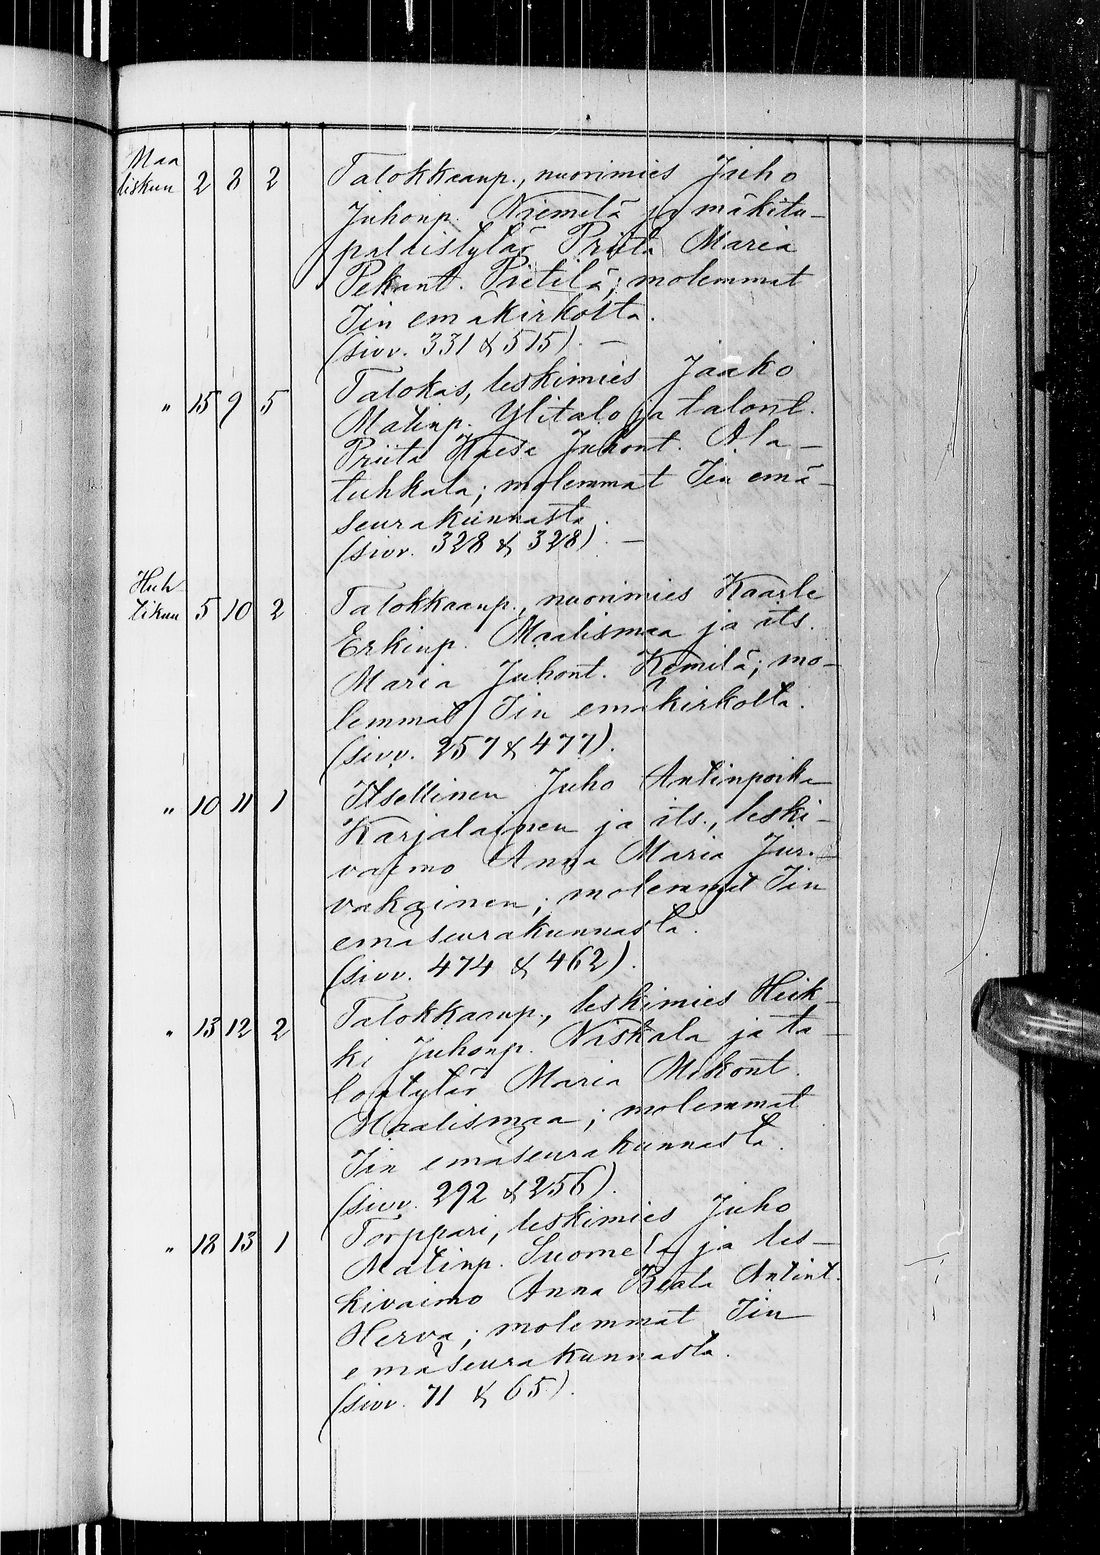 Maa
liskun 2 8 2 Talokkaanp., nuorimies Juho
Juhonp. Niemelä ja mäkitu-
palaistytär Priita Maria
Pekant. Pietilä; molemmat
Iin emäkirkolta.
(sivv. 331 & 515). —
" 15 9 5 Talokas, leskimies Jaako
Matinp. Ylitalo ja talont.
Priita Kaisa Juhont. Ala-
tuhkala; molemmat Iin emä-
seurakunnasta.
(sivv. 328 & 328). —
Huh-
tikun 5 10 2 Talokkaanp., nuorimies Kaarle
Erkinp. Maalismaa ja its.
Maria Juhont. Kemilä; mo-
lemmat Iin emäkirkolta.
(sivv. 257 & 477).
" 10 11 1 Itsellinen Juho Antinpoika
Karjalainen ja its., leski-
vaimo Anna Maria Jur-
vakainen; molemmat Iin
emäseurakunnasta.
(sivv. 474 & 462).
" 13 12 2 Talokkaanp., leskimies Heik-
ki Juhonp. Niskala ja ta-
lontytär Maria Mikont.
Maalismaa; molemmat
Iin emäseurakunnasta.
(sivv. 292 & 256).
" 18 13 1 Torppari, leskimies Juho
Matinp. Suomela ja les-
kivaimo Anna Beata Antint.
Herva; molemmat Iin
emäseurakunnasta.
(sivv. 71 & 65).